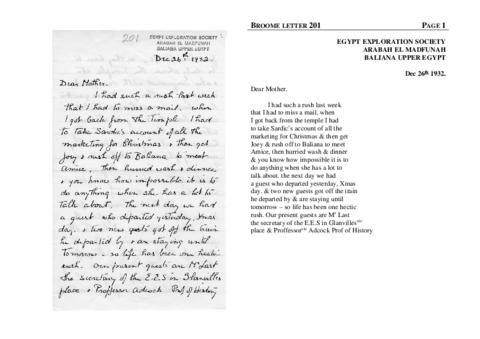 201
EGYPT EXPLORATION SOCIETY
ARABAH EL MADFUNAH
BALIANA UPPER EGYPT
Dec 26th 1932.
Dear Mother.
I had such a rush last week
that I had to miss a mail, when
I got back from the Temple I had
to take Sardic's account of all the
marketing for Christmas & then get
Joey & rush off to Baliana to meet
Amice, then hurried wash & dinner
& you know how impossible it is to
do anything when she has a lot to
talk about. The next day we had
a guest who departed yesterday, Xmas
day. & two new guests got off the train
he departed by & are staying until
tomorrow - so life has been one hectic
rush. Our present guests are Mr Last
the secretary of the E.E.S in Glanvilles
place & Professor Adcock Prof of History
BROOME LETTER 201
PAGE 1
EGYPT EXPLORATION SOCIETY
ARABAH EL MADFUNAH
BALIANA UPPER EGYPT
Dec 26th 1932.
Dear Mother,
I had such a rush last week
that I had to miss a mail, when
I got back from the temple I had
to take Sardic's account of all the
marketing for Christmas & then get
Joey & rush off to Baliana to meet
Amice, then hurried wash & dinner
& you know how impossible it is to
do anything when she has a lot to
talk about. the next day we had
a guest who departed yesterday, Xmas
day. & two new guests got off the train
he departed by & are staying until
tomorrow – so life has been one hectic
rush. Our present guests are Mr Last
the secretary of the E.E.S in Glanvilles
place & Professor Adcock Prof of History